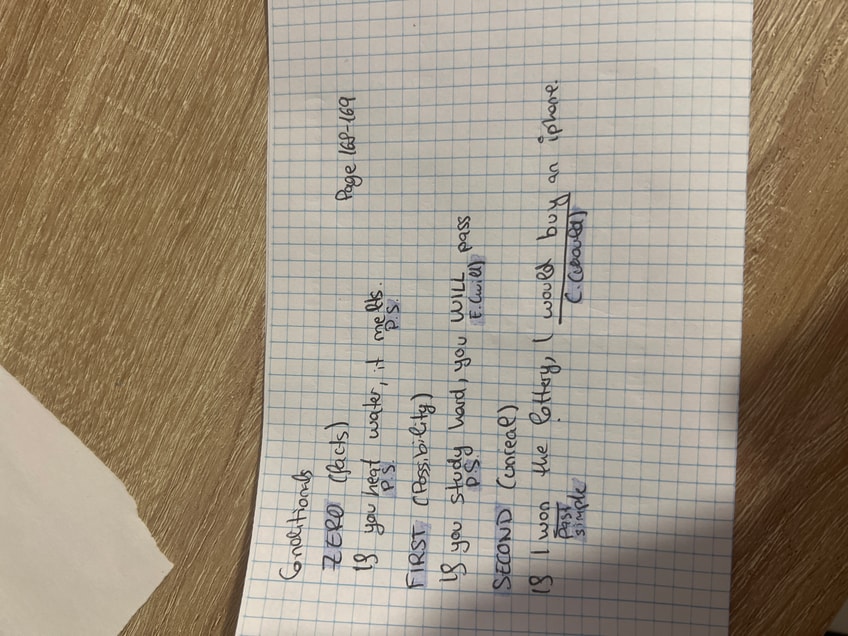 Conditionals
Page 168-169
ZERO (facts)
If you heat water, it melts.
P.S. P.S.
FIRST (Possibility)
If you study hard, you WILL pass
P.S. F.(will)
SECOND (unreal)
If I won the lottery, I would buy an iphone.
Past simple C.(would)